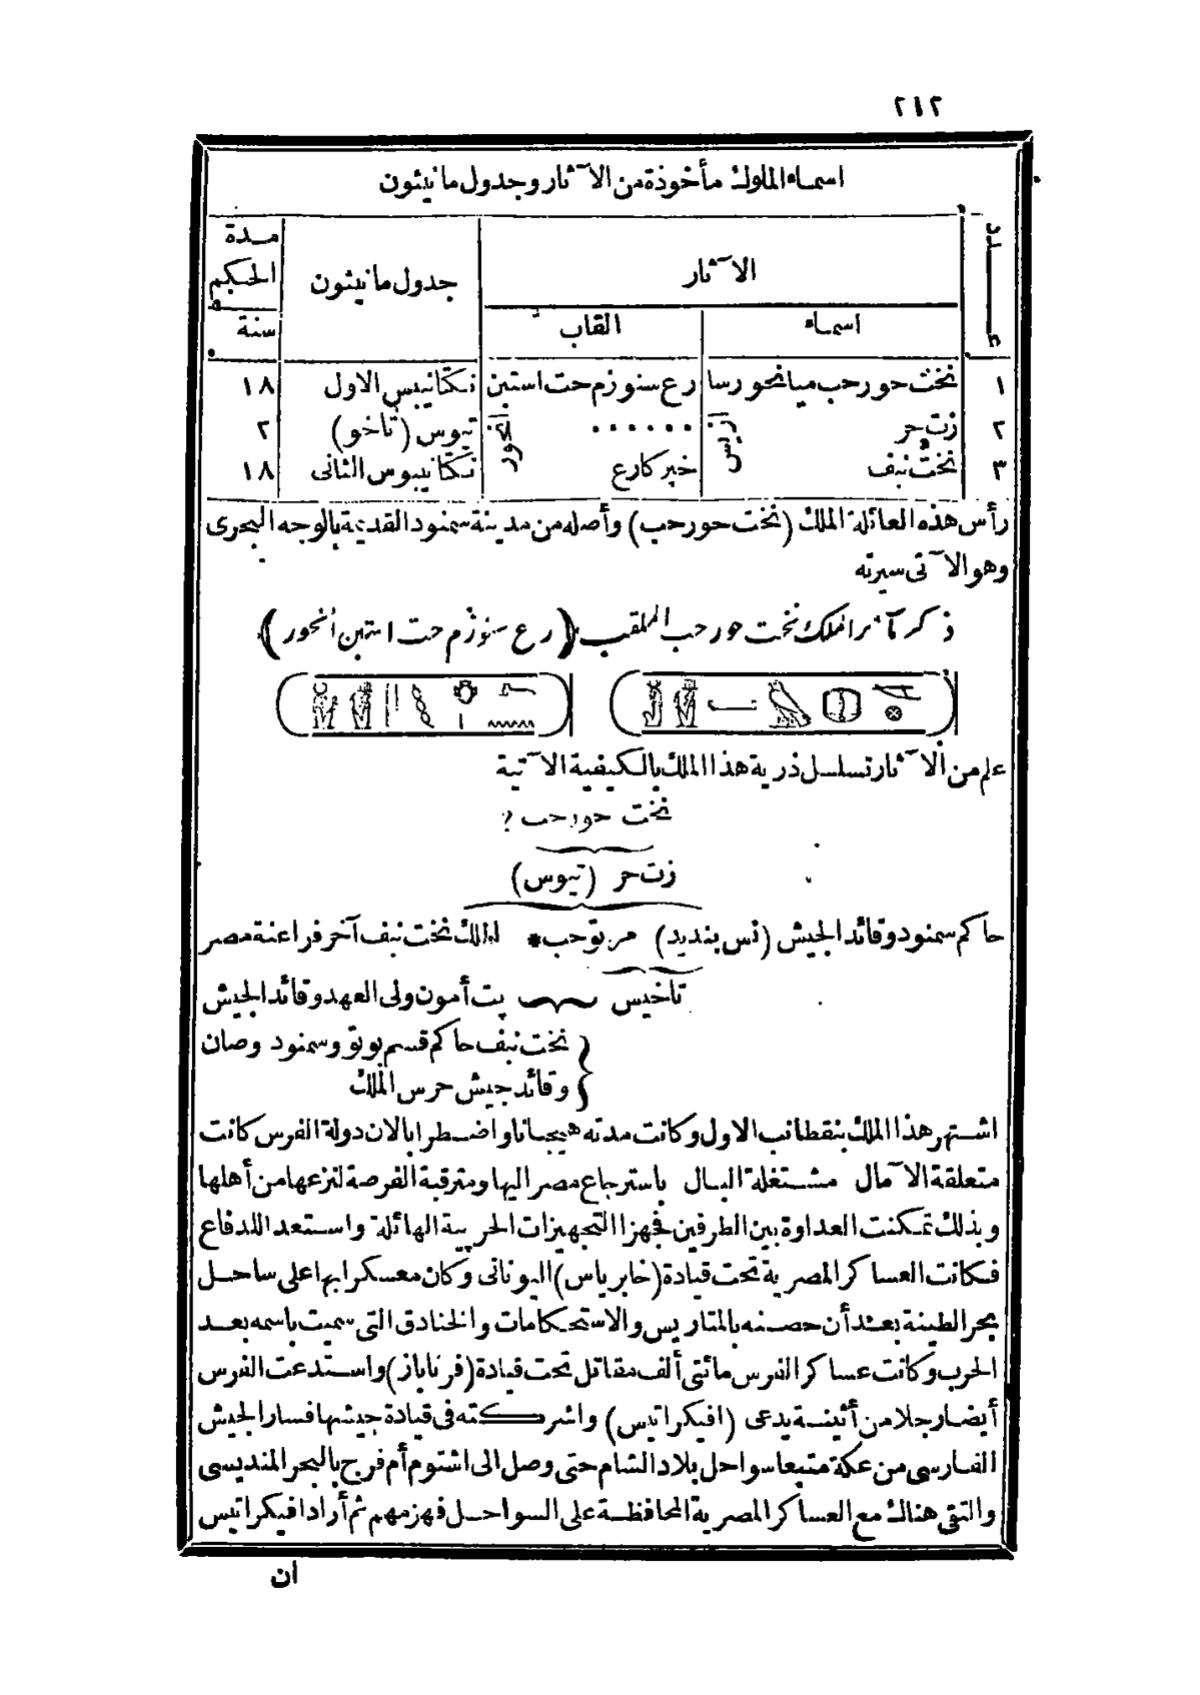 ٢١٢
اسماء الملوك مأخوذة من الآثار وجدول مانيثون
عدد
الآثار
جدول مانيثون
مدة
الحكم
اسماء
القاب
سنة
١ نخت حور حب ميا نحور سا رع سنوزم حت استبن نكتانيبس الاول ١٨
٢ زت حر ...... تيوس (تاخو) ٢
ازيس
انحور
٣ نخت نبف خبر كارع نكتانيبوس الثانى ١٨
رأس هذه العائلة الملك (نخت حور حب) وأصله من مدينة سمنود القديمة بالوجه البحرى
وهو الآتى سيرته
ذكر مآثر الملك نخت حور حب الملقب (رع سنوزم حت استبن انحور)
علم من الآثار تسلسل ذرية هذا الملك بالكيفية الآتية
نخت حور حب ?
زت حر (تيوس)
حاكم سمنود وقائد الجيش (نس بنديد) مر توحب * الملك نخت نبف آخر فراعنة مصر
تاخيس بت أمون ولى العهد وقائد الجيش
نخت نبف حاكم قسم بوتو وسمنود وصان
وقائد جيش حرس الملك
اشتهر هذا الملك بنقطانب الاول وكانت مدته هيجانا واضطرابا لان دولة الفرس كانت
متعلقة الآمال مشتغلة البال باسترجاع مصر اليها ومترقبة الفرصة لنزعها من أهلها
وبذلك تمكنت العداوة بين الطرفين فجهزا التجهيزات الحربية الهائلة واستعدا للدفاع
فكانت العساكر المصرية تحت قيادة (خابرياس) اليونانى وكان معسكرا بها على ساحل
بحر الطينة بعد أن حصنه بالمتاريس والاستحكامات والخنادق التى سميت باسمه بعد
الحرب وكانت عساكر الفرس مائتى ألف مقاتل تحت قيادة (فرناباز) واستدعت الفرس
أيضا رجلا من أثينة يدعى (افيكراتيس) واشركته فى قيادة جيشها فسار الجيش
الفارسى من عكة متبعا سواحل بلاد الشام حتى وصل الى اشتوم أم فرج بالبحر المنديسى
والتقى هناك مع العساكر المصرية المحافظة على السواحل فهزمهم ثم أراد افيكراتيس
ان